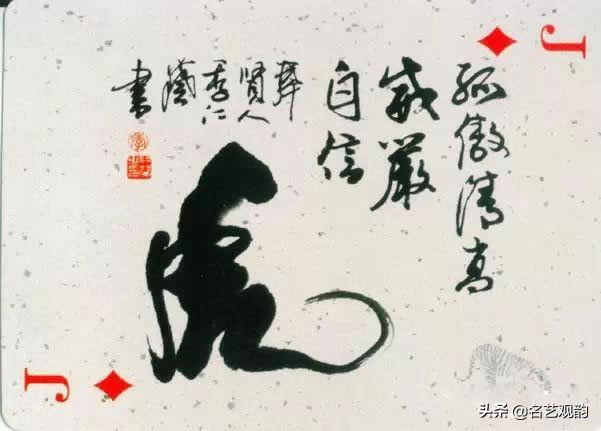 J
孤傲清高
威嚴
自信
賢人
書
虎
J
头条 @名艺观韵